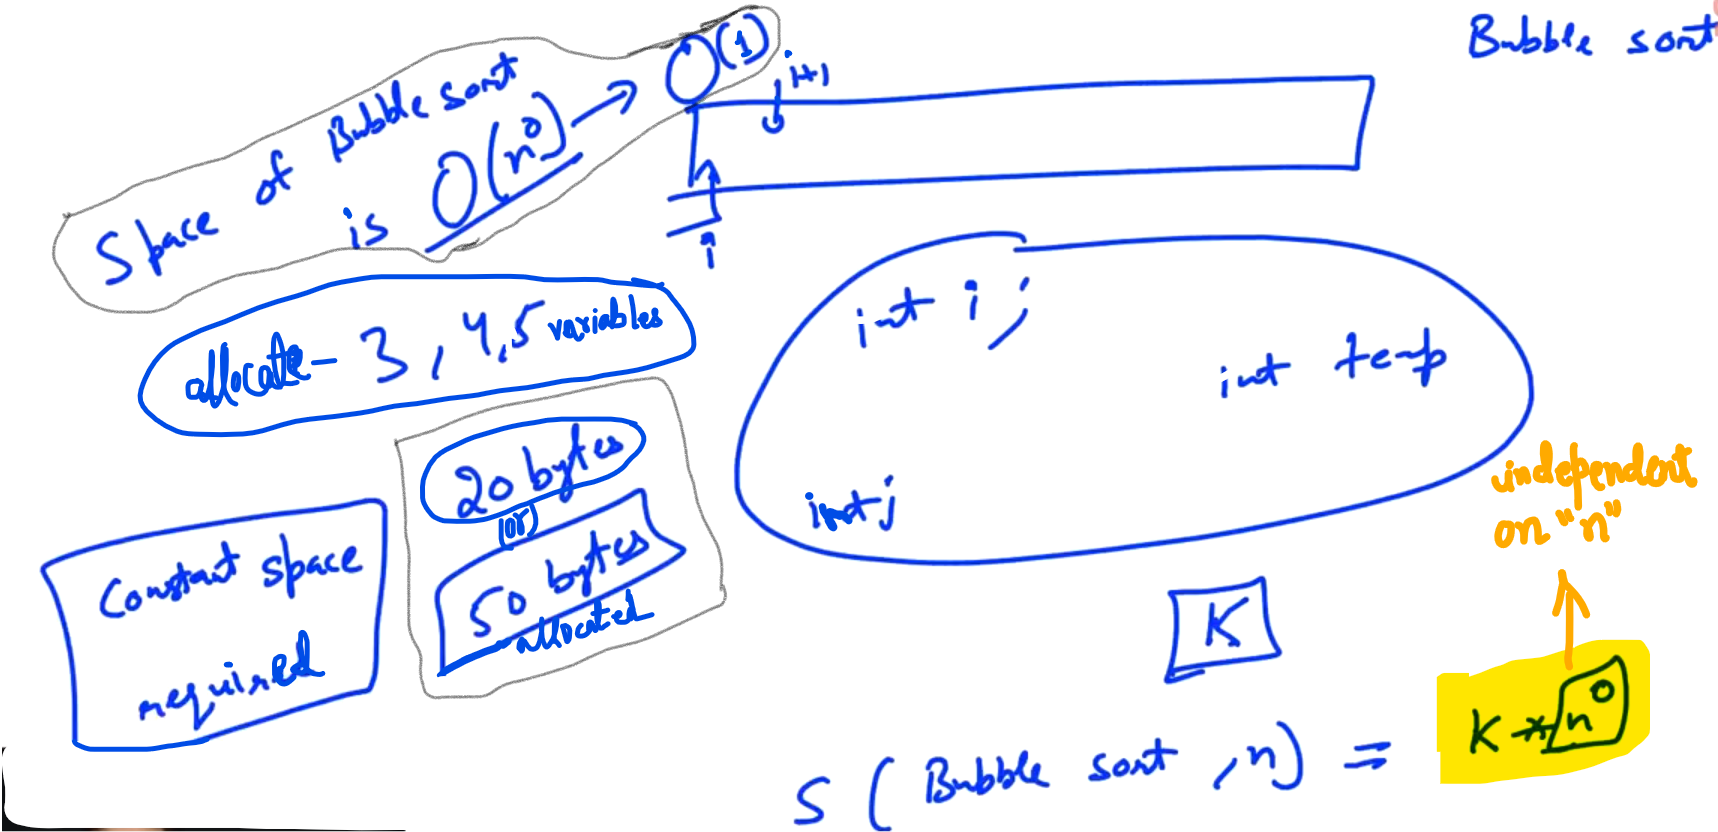 Bubble sort
Space of Bubble sort
is O(n⁰) → O(1)
i+1
i
allocate - 3, 4, 5 variables
int i;
int temp
int j
20 bytes
(or)
50 bytes
allocated
Constant space
required
independent
on "n"
K
S (Bubble sort, n) = K * n⁰